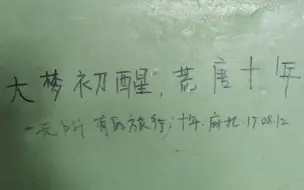 大梦初醒，荒唐十年
一无所有的旅行，十年.麻木.17.08.12